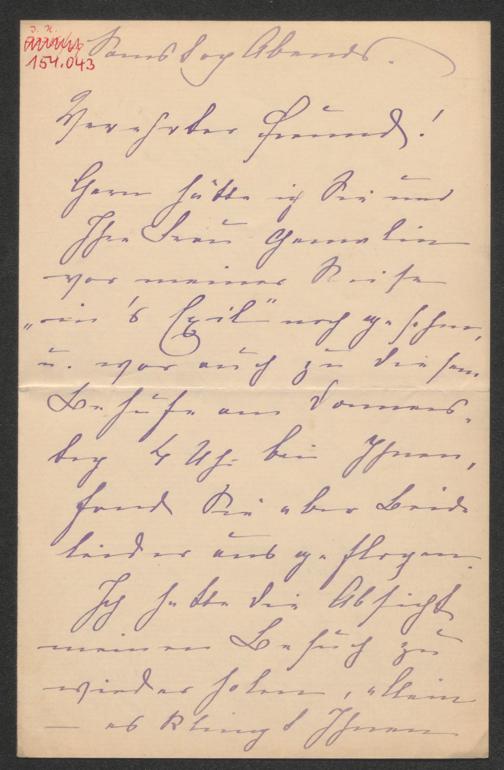 J. N.
154.043
Samstag Abends.
Verehrter Freund!
Gern hätte ich Sie und
Ihre Frau Gemalin
vor meiner Reise
„in's Exil" noch gesehen,
u. war auch zu diesem
Behufe am Donners-
tag 4 Uhr bei Ihnen,
fand Sie aber Beide
leider ausgeflogen.
Ich hatte die Absicht
meinen Besuch zu
wiederholen, allein
— es klingt Ihnen